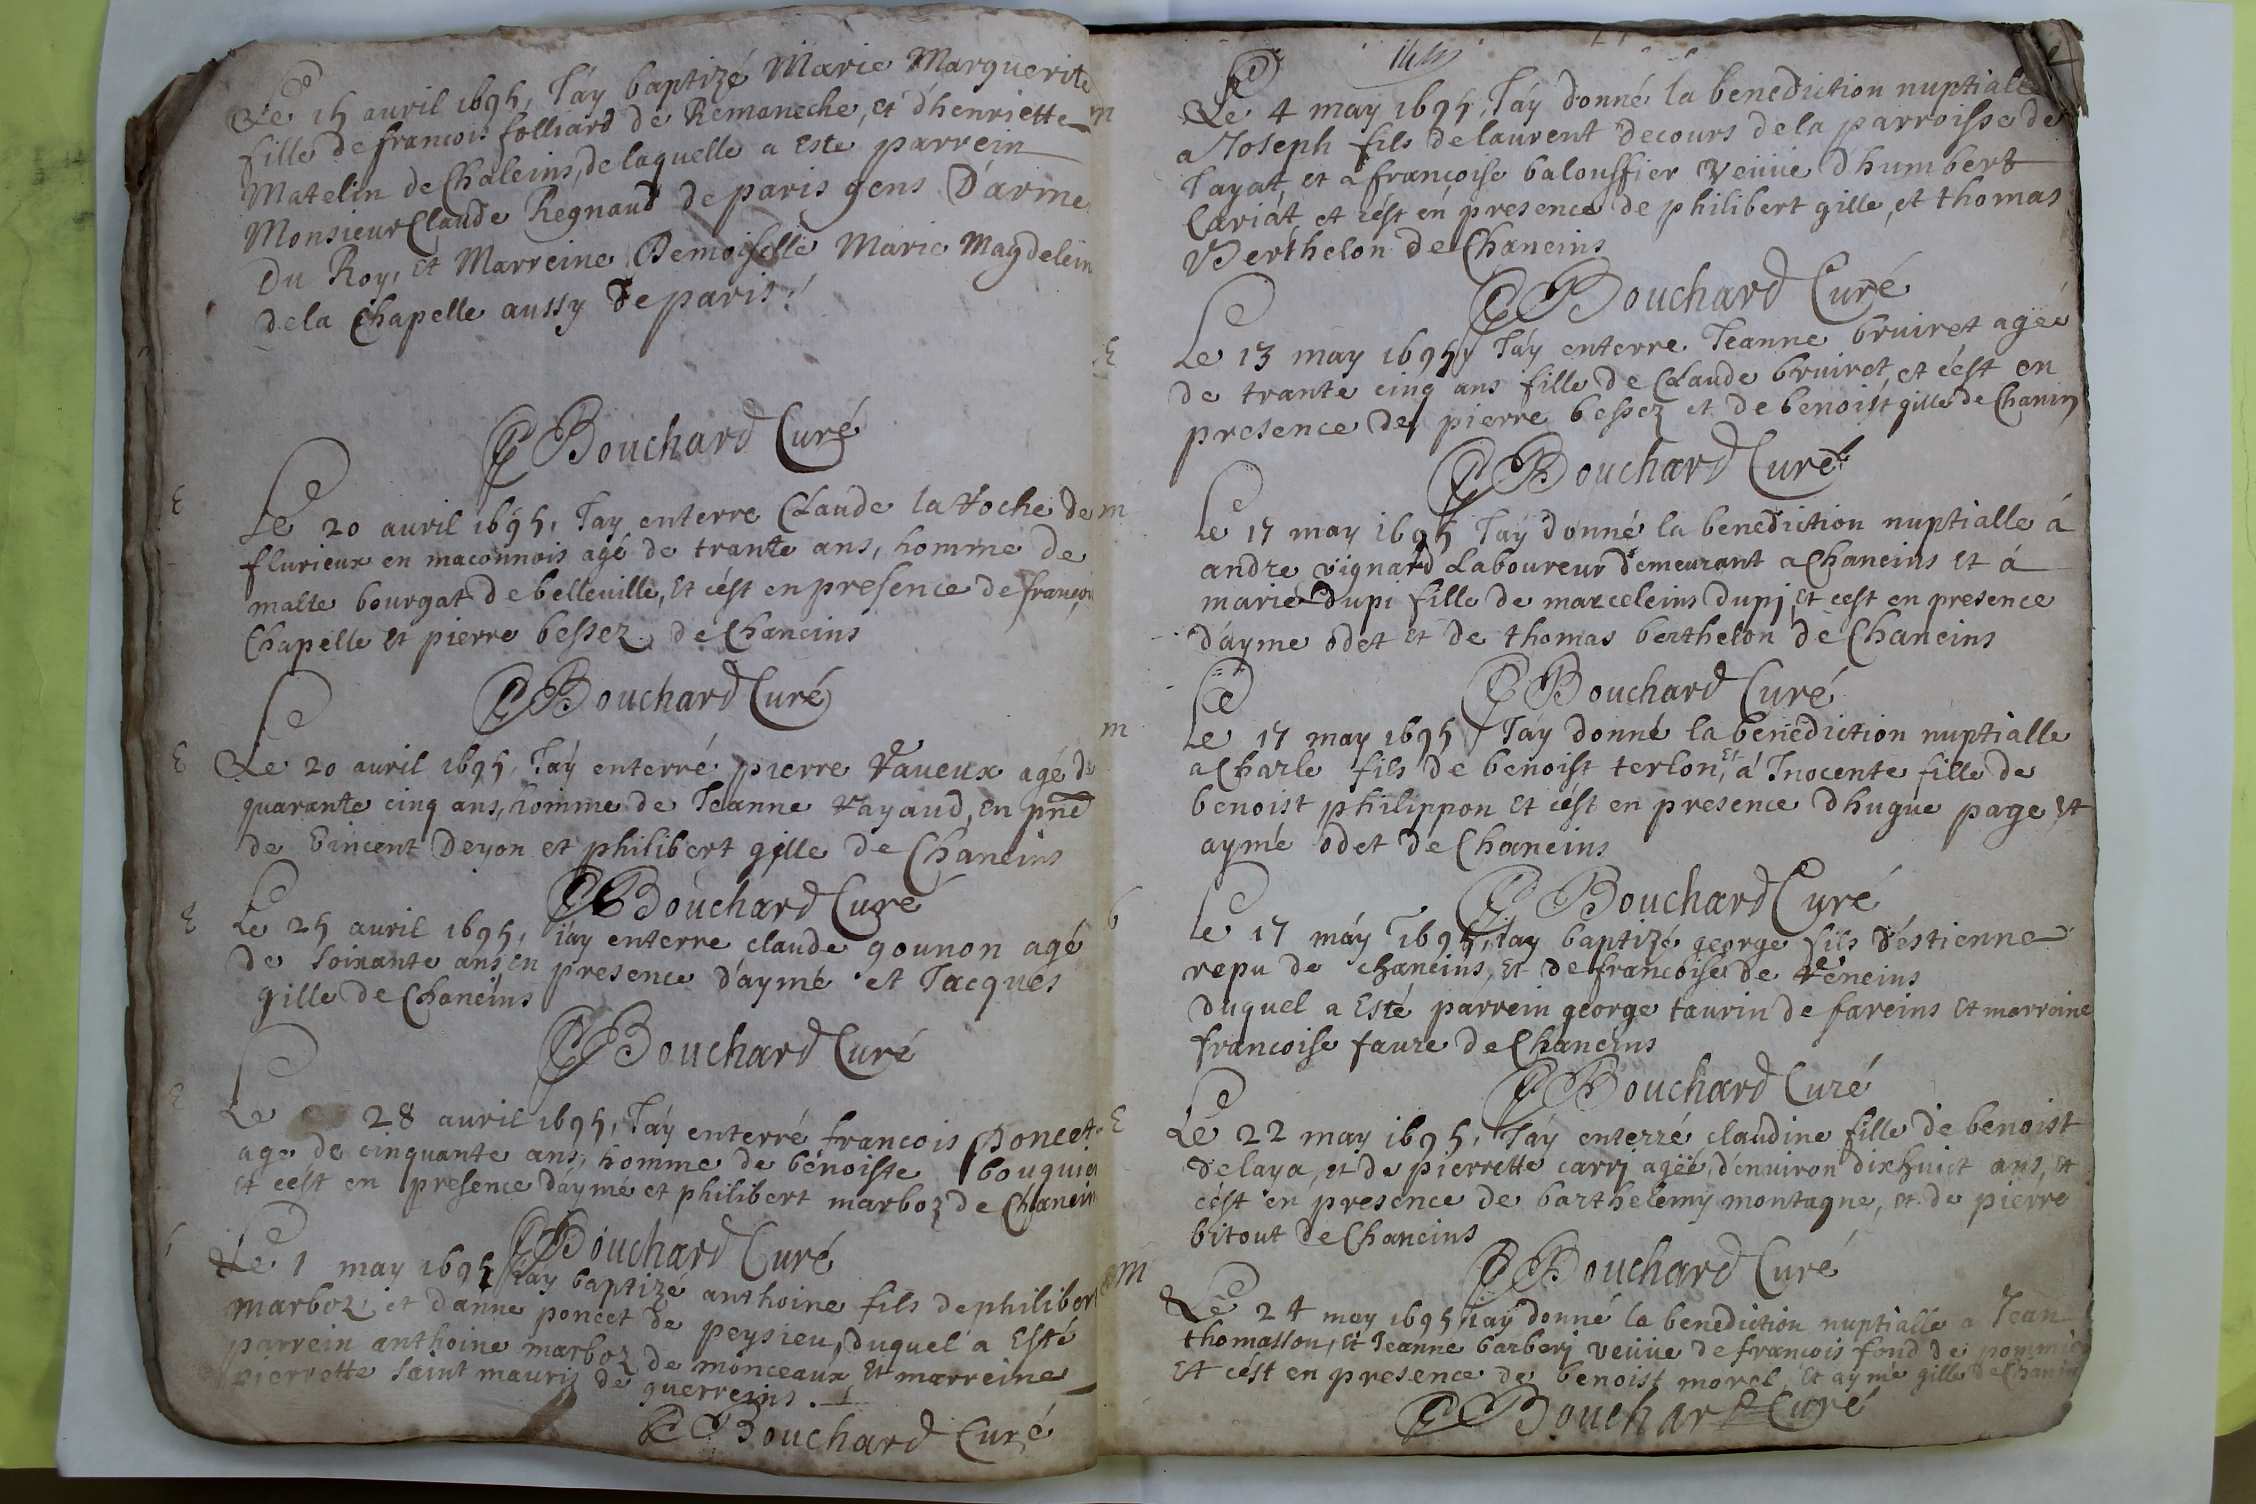 Le 15 avril 1695, J'áy baptizé Marie Marguerite
fille de francois folliard de Remaneche, et d'henriette
Matelin de Chaleins, de laquelle a Este parrein
Monsieur Claude Regnaud de paris gens D'arme
Du Roy, et Marreine Demoiselle Marie Magdelein
de la Chapelle aussy de paris.
Bouchard Curé
E
Le 20 avril 1695, J'ay enterre Claude la Roche de
flurieux en maconnois agé de trante ans, homme de
malte bourgat de belleville, et cést en presence de françois
Chapelle et pierre bessez de Chaneins
Bouchard Curé
E
Le 20 avril 1695, J'áy enterré pierre Raveux agé de
quarante cinq ans, homme de Jeanne Rayaud, en pn̄ce
de Vincent Deyon et philibert gille de Chaneins
Bouchard Curé
E
Le 25 avril 1695, j'ay enterre claude gounon agé
de soixante ans, en presence d'aymé et Jacques
gille de Chaneins
Bouchard Curé
E
Le 28 avril 1695, J'áy enterré francois Poncet
age de cinquante ans, homme de bénoiste
et cést en presence d'aymé et philibert marboz de Chaneins
Bouchard Curé
Le 1 may 1695 j'ay baptizé anthoine fils de philibert
marboz, et d'anne poncet de peysieu, duquel a Esté
parrein anthoine marboz de monceaux et marreine
pierrette saint mauris de guerreins.
Bouchard Curé
m
Le 4 may 1695, J'áy donné la benediction nuptialle
a Joseph fils de laurent decours de la parroisse de
Tayat, et a francoise baloussier veuue d'humbert
Cariát et cést en presence de philibert gille, et thomas
Berthelon de Chaneins
Bouchard Curé
E
Le 13 may 1695, J'áy enterre Jeanne bruiret agée
de trante cinq ans fille de Claude bruiret, et cést en
presence de pierre bessez et de benoist gille de Chanins
Bouchard Curé
m
Le 17 may 1695 J'áy donné la benediction nuptialle á
andre vignard Laboureur demeurant a Chaneins et á
marie dupi fille de marceleins dupj, et cest en presence
d'ayme odet et de thomas berthelon de Chaneins
Bouchard Curé
m
Le 17 may 1695 J'áy donné la benédiction nuptialle
a Charle fils de benoist terlon, et á Jnocente fille de
benoist philippon et cést en presence d'hugue page et
aymé odet de Chaneins
Bouchard Curé
b
Le 17 máy 1695, j'ay baptizé george fils d'éstienne
repu de chaneins, et de francoise de Réneins
duquel a Esté parrein george taurin de fareins et marraine
francoise faure de Chaneins
Bouchard Curé
E
Le 22 may 1695, J'áy enterré claudine fille de benoist
delaya, et de pierrette carrj ageé, d'enuiron dix huict ans, et
cést en presence de barthelemy montagne, et de pierre
bitout de Chaneins
Bouchard Curé
m
Le 24 may 1695, j'ay donné la benediction nuptialle a Jean
thomasson, et Jeanne barberj veuue de francois fond de
et cést en presence de benoist morel, et aymé gille de Chanins
Bouchard Curé